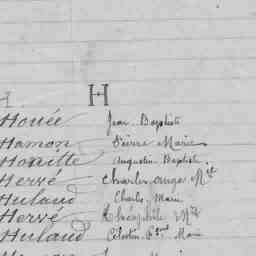 H
Houée Jean Baptiste
Hamon Pierre Marie
Honitte Augustin Baptiste
Hervé Charles ange Mie
Huland Charles Marie
Hervé Théophile Mie
Huland Célestin Marie